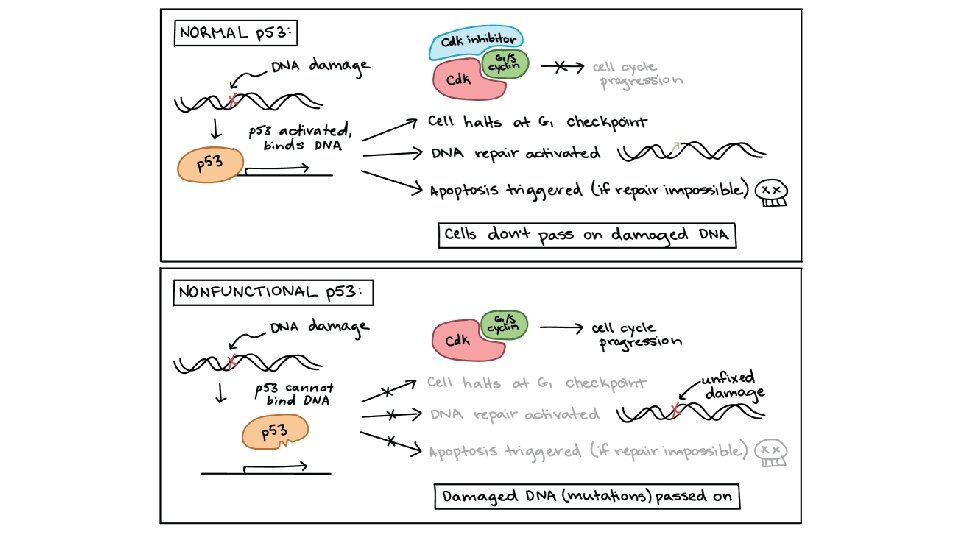 NORMAL p53:
DNA damage
p53 activated,
binds DNA
p53
Cdk inhibitor
G1/S
cyclin
Cdk
cell cycle
progression
Cell halts at G1 checkpoint
DNA repair activated
Apoptosis triggered (if repair impossible)
xx
Cells don't pass on damaged DNA
NONFUNCTIONAL p53:
DNA damage
p53 cannot
bind DNA
p53
G1/S
cyclin
Cdk
cell cycle
progression
Cell halts at G1 checkpoint
unfixed
damage
DNA repair activated
Apoptosis triggered (if repair impossible)
xx
Damaged DNA (mutations) passed on